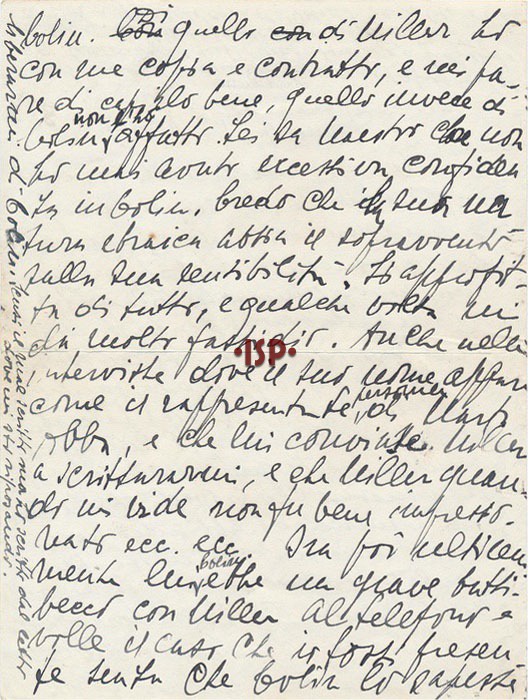 Colin. Di quello con di Miller ho
con me copia e contratto, e mi pa-
re di capirlo bene, quello invece di
Colin, non l'ho affatto. Lei sa Maestro che non
ho mai avuto eccessiva confiden
za in Colin. Credo che la sua na
tura ebraica abbia il sopravvento
sulla sua sensibilità. Si approfit-
ta di tutto, e qualche volta mi
dà molto fastidio. Anche nelle
interviste dove il suo nome appare
come il rappresentante, personale di Marta
Abba, e che lui convinse Miller
a scritturarmi, e che Miller quan
do mi vide non fu bene impresso-
nato ecc. ecc. Ma poi ultima
mente lui, Colin, ebbe un grave batti-
becco con Miller al telefono e
volle il caso che io fossi presen
te senza che Colin lo sapesse
liberarsi di Colin. Scusi il mal scritto ma ho scritto dal letto
dove mi sto riposando.
·ISP·